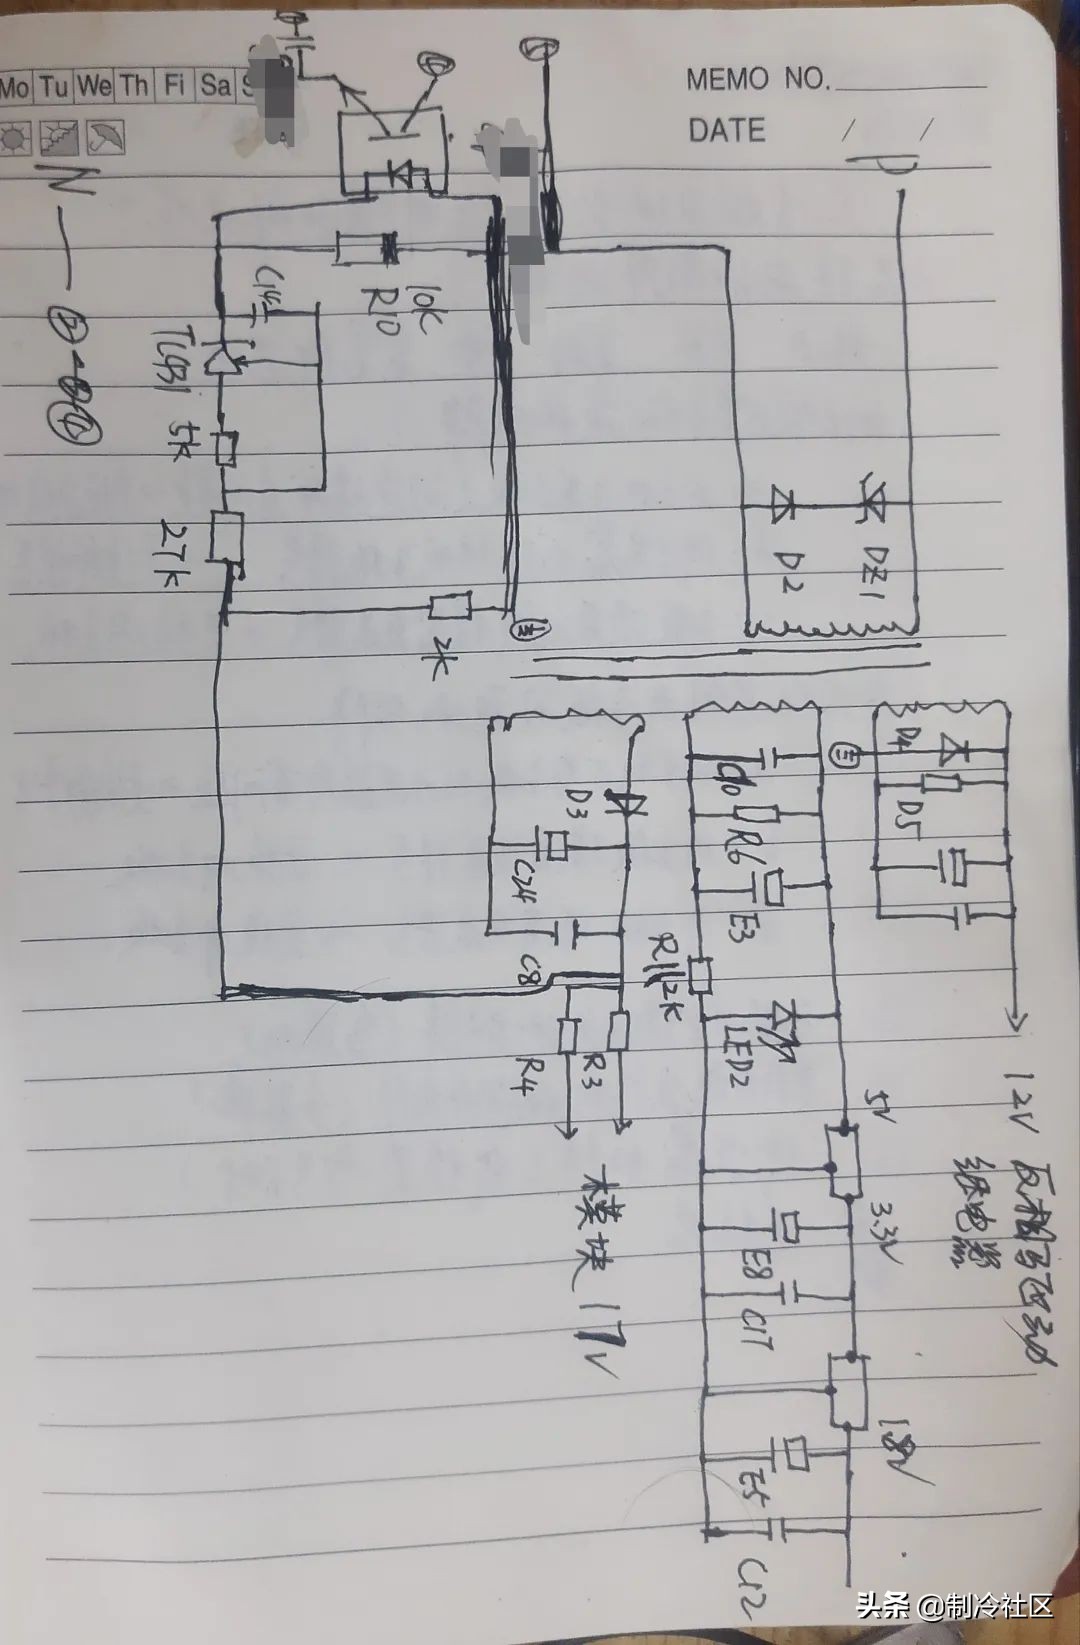 Mo Tu We Th Fi Sa S
MEMO NO.
DATE / /
N
P
10k
R10
C14
TL431
5k
27k
2K
DZ1
D2
D3
C24
C8
R4
R3
模块 17V
C10
R6
E3
R11 2K
LED2
D4
D5
12V
继电器
5V
3.3V
E8
C17
1.8V
E5
C12
头条 @制冷社区